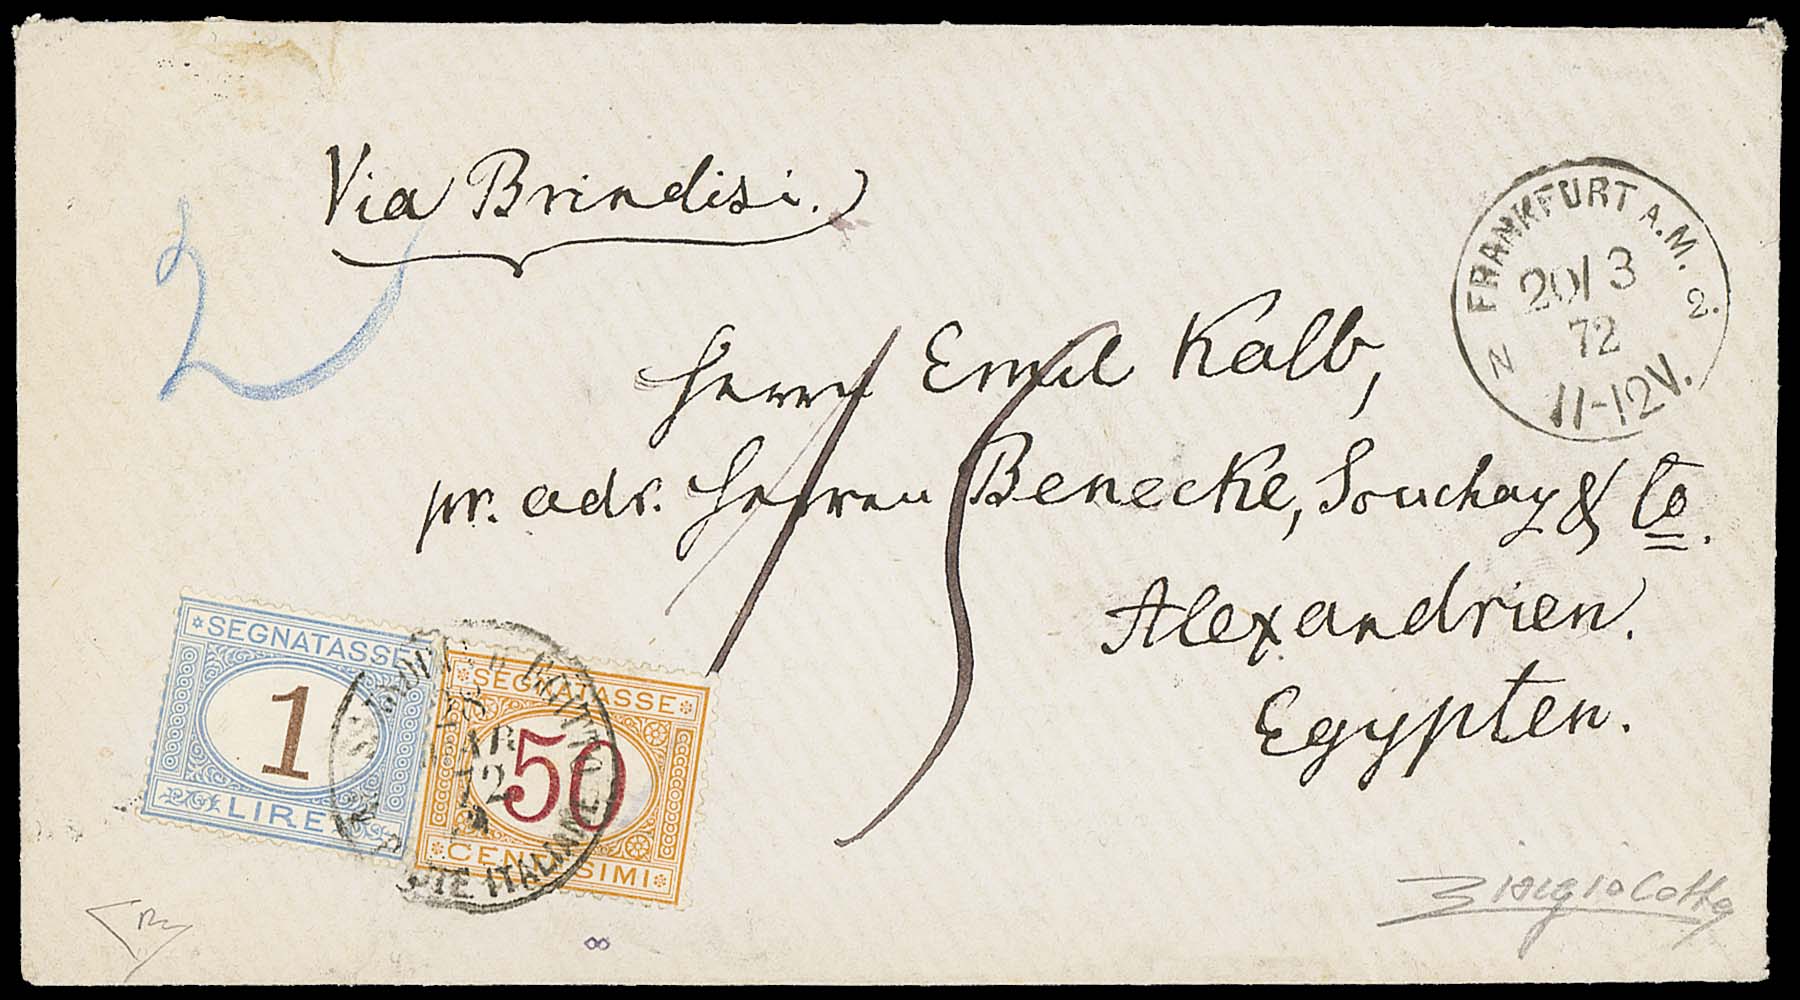 Via Brindisi.
2
FRANKFURT A.M.
N 2.
20/3
72
11-12V.
Herrn Emil Kalb,
pr. adr. Herren Benecke, Souchay & Co.
Alexandrien.
Egypten.
15
SEGNATASSE
1
LIRE
SEGNATASSE
50
CENTESIMI
28
MAR
72
POSTE ITALIANE